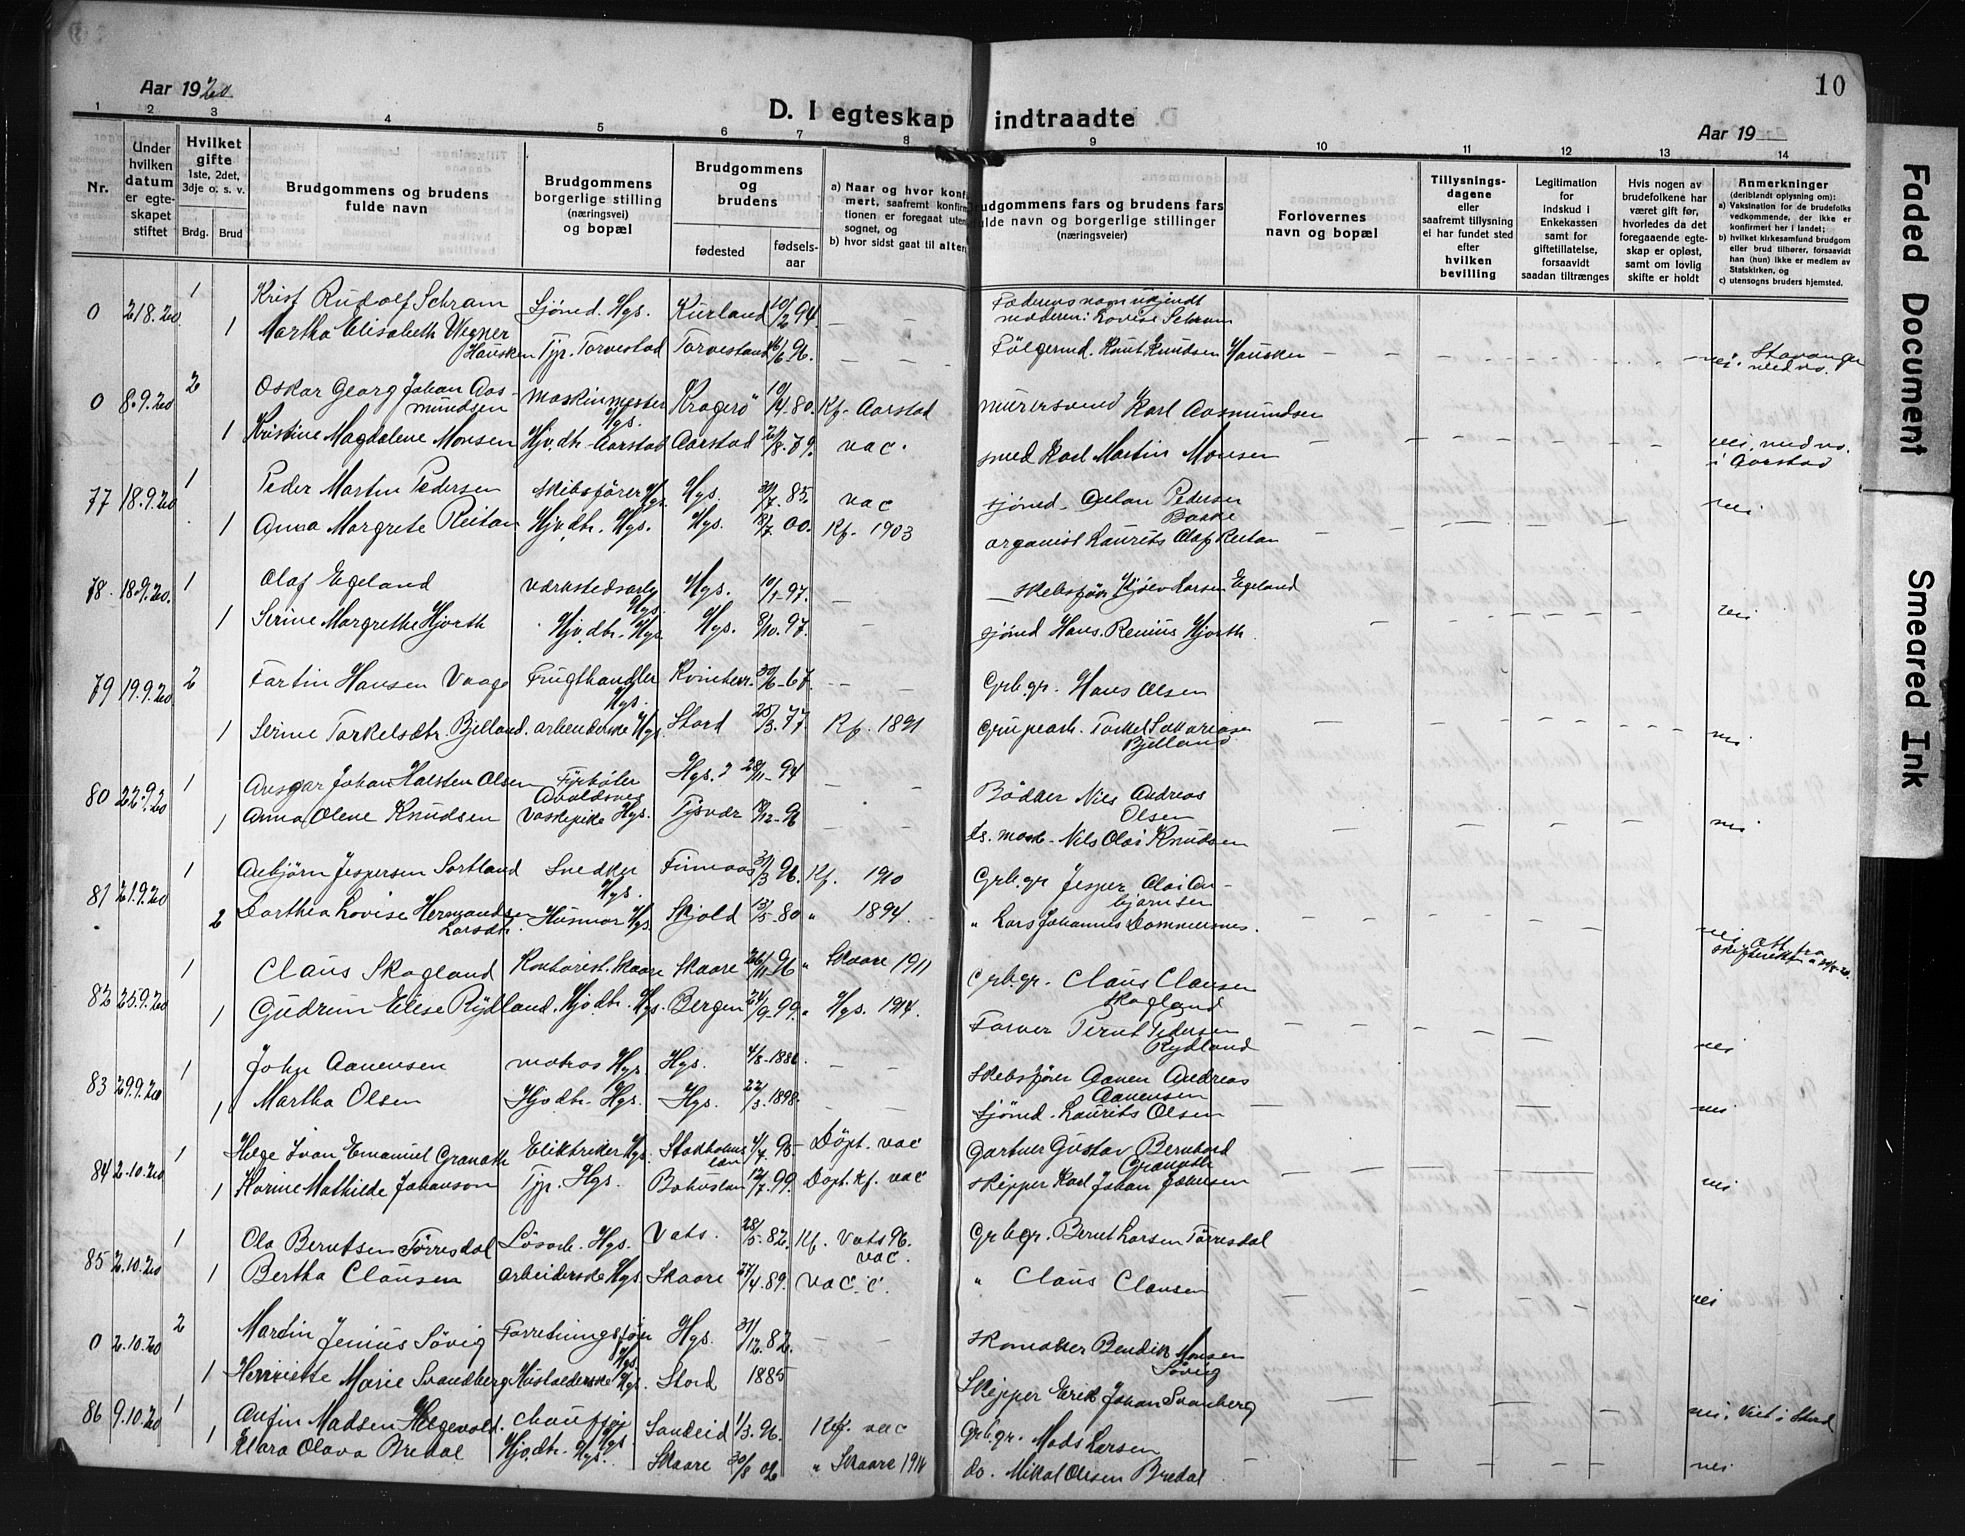 10
Aar 1920
D. I egteskap indtraadte
Aar 19
1 2 3 4 5 6 7 8 9 10 11 12 13 14
Nr.
Under hvilken datum er egteskapet stiftet
Hvilket gifte 1ste, 2det, 3dje o. s. v.
Brdg. Brud
Brudgommens og brudens fulde navn
Brudgommens borgerlige stilling (næringsvei) og bopæl
Brudgommens og brudens
fødested fødselsaar
a) Naar og hvor konf
mert, saafremt konfir
tionen er foregaat uten
sognet, og
b) hvor sidst gaat til alter
udgommens fars og brudens fars
fulde navn og borgerlige stillinger
(næringsveier)
Forlovernes navn og bopæl
Tillysningsdagene eller saafremt tillysning ei har fundet sted efter hvilken bevilling
Legitimation for indskud i Enkekassen samt for giftetillatelse, forsaavidt saadan tiltrænges
Hvis nogen av brudefolkene har været gift før, hvorledes da det foregaaende egteskap er opløst, samt om lovlig skifte er holdt
Anmerkninger
(deriblandt oplysning om):
a) Vaksination for de brudefolks vedkommende, der ikke er konfirmert her i landet;
b) hvilket kirkesamfund brudgom eller brud tilhører, forsaavidt han (hun) ikke er medlem av Statskirken, og
c) utensogns bruders hjemsted.
0 21.8.20 1 Krist Rudolf Schram Sjömd. Hgs. Kurland 10/2 94. – – Faderens navn ukjendt moderen: Lovise Schram
1 Martha Elisabeth Wegner Hausken Tyr. Torvestad Torvestad 16/6 96. – – Fölgemd. Knut Knudsen Hausken nei. Stavanger
0 8.9.20 2 Oskar Georg Johan Aasmundsen Maskinmester Hgs. Kragerö 10/4 80. Kf. Aarstad murersvend Karl Aasmundsen
1 Kristine Magdalene Monsen Hjv.dtr. Aarstad Aarstad /8. 79. vac. smed Karl Martin Monsen nei, i Aarstad
77 18.9.20 1 Peder Martin Pedersen Skibsförer Hgs. Hgs. 30/7. 85. vac sjömd. Pedersen
1 Anna Margrete Reitan Hjv.dtr. Hgs. Hgs. /7. 00. Kf. 1903 organist Laurits Olaf Reitan nei
78 18.9.20. 1 Olaf Egeland værkstedsarb. Hgs. Hgs. 10/1 97. – Skibsförer Larsen Egeland
1 Serine Margrethe Hjorth Hjv.dtr. Hgs. Hgs. 8/10. 97. – sjömd Hans Remius Hjorth nei
79 19.9.20 2 Fartin Hansen Vaage Frugthandler Hgs. Kvinherr. 30/6 – 67. – – Grb.gr. Hans Olsen
1 Serine Torkelsdtr. Bjelland. arbeiderske Hgs. Stord 25/3. 77. Kf. 1891 Grupearb. Torkel Sakariasen Bjelland nei
80 22.9.20 1 Ansgar Johan Halsten Olsen Fyrböter Avaldsnes Hgs. 28/11 – 94 – – Bödker Nils Andreas Olsen
1 Anna Olene Knudsen Vaskepike Hgs. Tysvær /12 – 96 – – Nils Olai Knudsen nei
81 21.9.20 1 Aubjörn Jespersen Sortland Snedker Hgs. Finnaas /3 96. Kf. 1910 Grb.gr Jesper Olai Aubjörnsen
2 Dorthea Lovise Hermandsen Larsdtr. Husmor Hgs. Skjold 13/5 – 80 " 1894. " Lars Johannes Dommersnes. nei, att fra skifteretten
82 25.9.20 1 Claus Skogland Kontorist. Skaare Skaare 26/11 – 96 " Skaare 1911 Grb.gr. Claus Clausen Skogland
1 Gudrun Elise Rydland. Hjv.dtr. Hgs. Bergen 24/9 – 99. " Hgs. 1914. Farver Bernt Pedersen Rydland nei
83 29.9.20 1 John Aanensen matros Hgs. Hgs. 4/8 – 1886. – – Skibsförer Aanen Andreas Aanensen
1 Martha Olsen Hjv.dtr. Hgs. Hgs. 22/3. 1898. – – Sjömd. Laurits Olsen nei
84 2.10.20 1 Helge Ivan Emanuel Granath Elektriker Hgs. Stockholms län 4/4. 95 – Döpt. vac Gartner Gustav Bernhard Granath
1 Karine Mathilde Johanson Tyr. Hgs. Bohuslän 12/7. 99. Döpt. Kf. vac Skipper Karl Johan Johansen nei
85 2.10.20 1 Ola Berntsen Törresdal Lösarb. Hgs. Vats. 28/5. 82. Kf. Vats 96. vac. Grb.gr. Bernt Larsen Törresdal
1 Bertha Clausen arbeiderske Hgs. Skaare 27/4. 89. vac. c. " Claus Clausen nei
0 2.10.20 2 Martin Jenius Sövig Forretningsförer Hgs. Hgs. 31/12. 82. – – Skomaker Bendik Monsen Sövig
1 Henriette Marie Svandberg Hgs. Stord 1885 Skipper Erik Johan Svanberg nei, Viet i Stord
86 9.10.20 1 Anfin Madsen Helgevold. Chauffør Hgs. Sandeid 1/3. 96. Kf. vac Grb.gr. Mads Larsen
1 Klara Olava Bredal Hjv.dtr. Hgs. Skaare 30/8 02 " Skaare 1914 do. Mikal Olsen Bredal nei
Faded Document
Smeared Ink